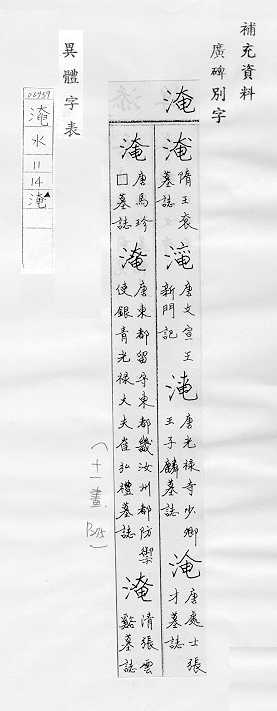 補充資料
廣碑別字
淹
淹 隋王袞墓誌
淹 唐文宣王新門記
淹 唐光祿寺少卿王子麟墓誌
淹 唐處士張才墓誌
淹 唐馬珍□墓誌
淹 唐東都留守東都畿汝州都防禦使銀青光祿大夫崔弘禮墓誌
淹 清張雲谿墓誌
(十一畫.
異體字表
淹
水
11
14
淹